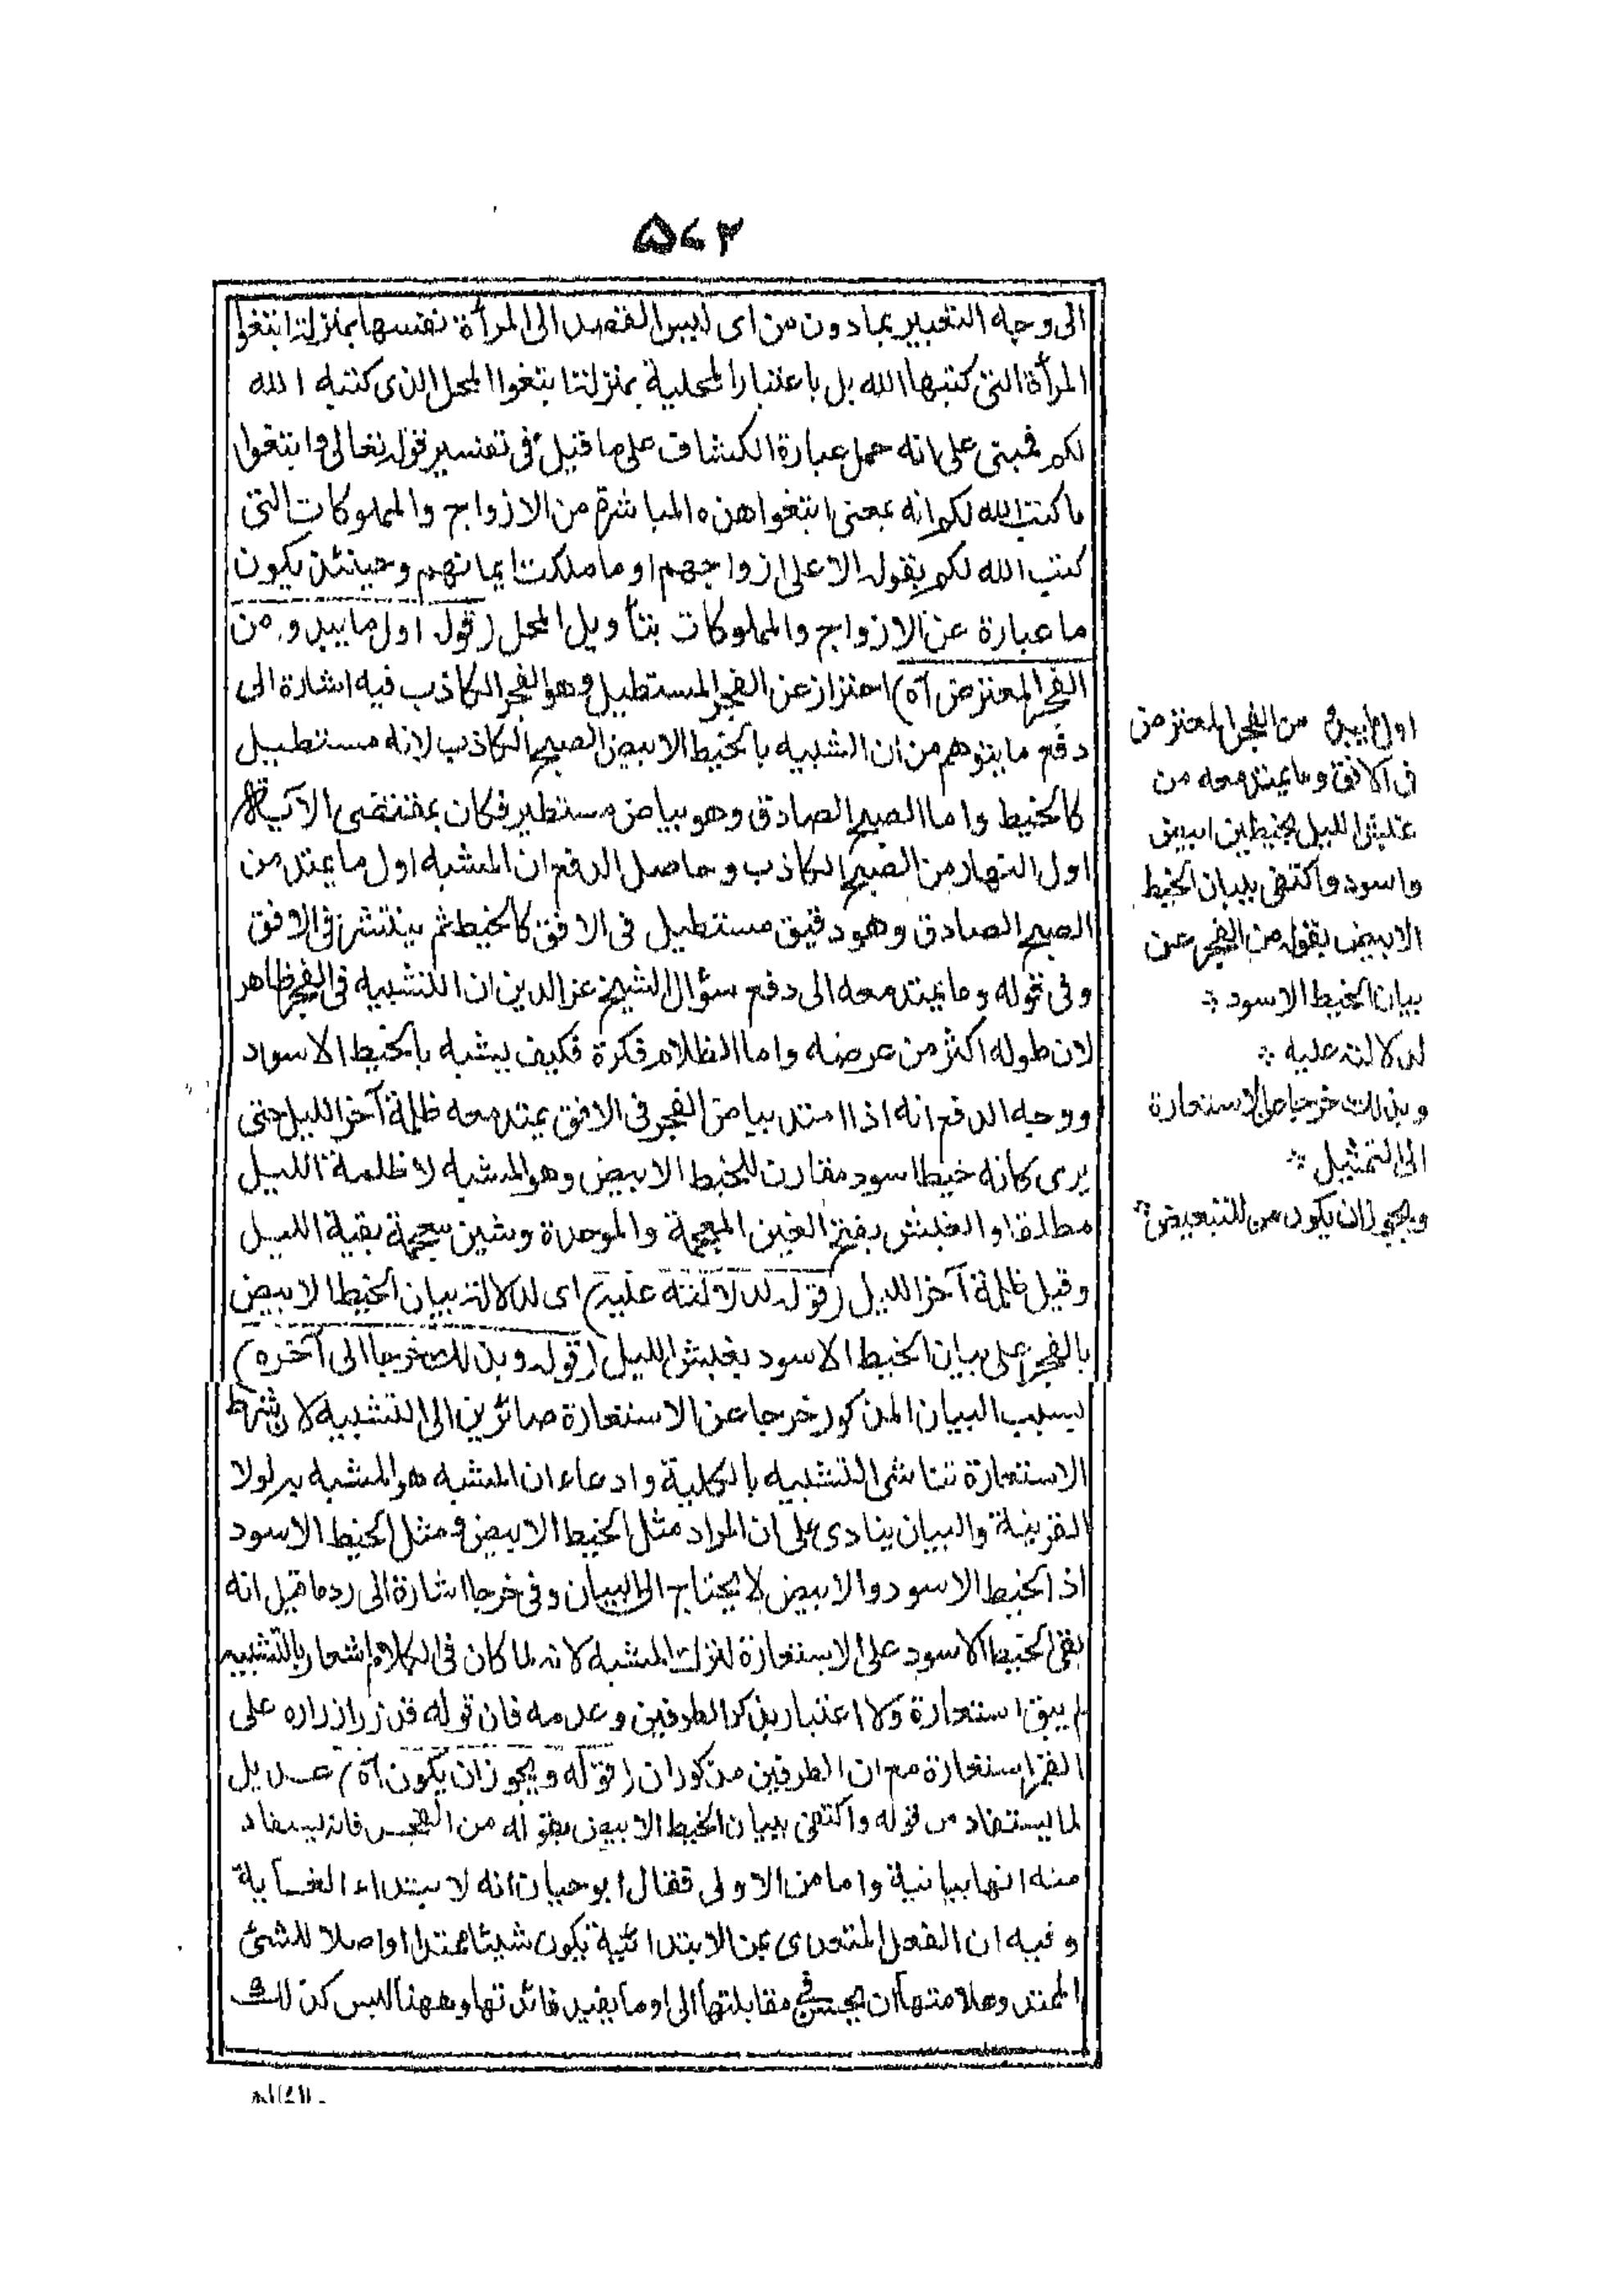 ٥٧٢
الى وجه التعبير بما دون من اى ليس القصد الى المرأة نفسها بمنزلة ابتغوا
المرأة التى كتبها الله بل باعتبار المحلية بمنزلة ابتغوا المحل الذى كتبه الله
لكم فمبنى على انه حمل عبارة الكشاف على ما قيل فى تفسير قوله تعالى وابتغوا
ما كتب الله لكم انه بمعنى ابتغوا هذه المباشرة من الازواج والمملوكات التى
كتب الله لكم بقوله الا على ازواجهم او ما ملكت ايمانهم وحينئذ يكون
ما عبارة عن الازواج والمملوكات بتأويل المحل (قوله اول ما يبدو من
الفجر المعترض آه) احتراز عن الفجر المستطيل وهو الفجر الكاذب فيه اشارة الى
دفع ما يتوهم من ان الشبيه بالخيط الابيض الصبح الكاذب لانه مستطيل
كالخيط واما الصبح الصادق وهو بياض مستطير فكان بمقتضى الآية
اول النهار من الصبح الكاذب وحاصل الدفع ان المشبه اول ما يمتد من
الصبح الصادق وهو دقيق مستطيل فى الافق كالخيط ثم ينتشر فى الافق
وفى قوله وما يمتد معه الى دفع سؤال الشيخ عز الدين ان التشبيه فى الفجر ظاهر
لان طوله اكثر من عرضه واما الظلام فكرة فكيف يشبه بالخيط الاسود
ووجه الدفع انه اذا امتد بياض الفجر فى الافق يمتد معه ظلمة آخر الليل حتى
يرى كانه خيط اسود مقارن للخيط الابيض وهو المشبه لا ظلمة الليل
مطلقا والغبش بفتح الغين المعجمة والموحدة وشين معجمة بقية الليل
وقيل ظلمة آخر الليل (قوله لدلالته عليه) اى لدلالة بيان الخيط الابيض
بالفجر على بيان الخيط الاسود بغبش الليل (قوله وبذلك خرجا الى آخره)
بسبب البيان المذكور خرجا عن الاستعارة صائرين الى التشبيه لان شرط
الاستعارة تناسى التشبيه بالكلية وادعاء ان المشبه هو المشبه به لولا
القرينة والبيان ينادى على ان المراد مثل الخيط الابيض ومثل الخيط الاسود
اذ الخيط الاسود والابيض لا يحتاج الى البيان وفى خرجا اشارة الى رد ما قيل انه
بقى الخيط الاسود على الاستعارة لترك المشبه لانه لما كان فى الكلام اشعار بالتشبيه
لم يبق استعارة ولا اعتبار بذكر الطرفين وعدمه فان قوله قد زر ازراره على
القمر استعارة مع ان الطرفين مذكوران (قوله ويجوز ان يكون آه) عديل
لما يستفاد من قوله واكتفى ببيان الخيط الابيض بقوله من الفجر فانه يستفاد
منه انها بيانية واما من الاولى فقال ابو حيان انه لابتداء الغاية
وفيه ان الفعل المتعدى بمن الابتدائية يكون شيئا ممتدا او اصلا للشئ
الممتد وعلامتها ان يحسن فى مقابلتها الى او ما يفيد فائدتها وههنا ليس كذلك
اول ما يبدو من الفجر المعترض
فى الافق وما يمتد معه من
غبش الليل بخيطين ابيض
واسود واكتفى ببيان الخيط
الابيض بقوله من الفجر عن
بيان الخيط الاسود
لدلالته عليه
وبذلك خرجا عن الاستعارة
الى التمثيل
ويجوز ان يكون من للتبعيض